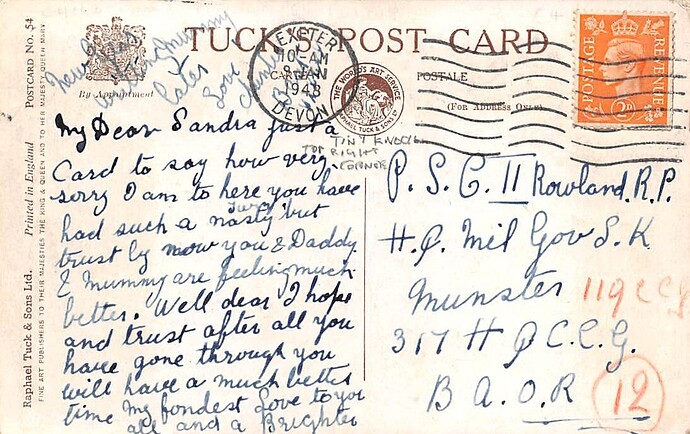 TUCK'S POST CARD
CARTE POSTALE
(FOR ADDRESS ONLY)
By Appointment
EXETER
10 - AM
JAN
1948
DEVON
THE WORLD'S ART SERVICE
RAPHAEL TUCK & SONS LTD
POSTAGE
REVENUE
2D
TINY KNOCK
TOP RIGHT
CORNER
Raphael Tuck & Sons Ltd. Printed in England POSTCARD No. 54
FINE ART PUBLISHERS TO THEIR MAJESTIES THE KING & QUEEN AND TO HER MAJESTY QUEEN MARY
My Dear Sandra just a
Card to say how very
sorry I am to here you have
had such a nasty turn but
trust by now you & Daddy
& Mummy are feeling much
better. Well dear I hope
and trust after all you
have gone through you
will have a much better
time my fondest Love to you
all and a Brighter
New
Mummy
later
love
P. S. C. II Rowland. R. P.
H. Q. Mil Gov S. K
Munster
317 H Q C. C. G.
B A. O. R
119 CCG
12